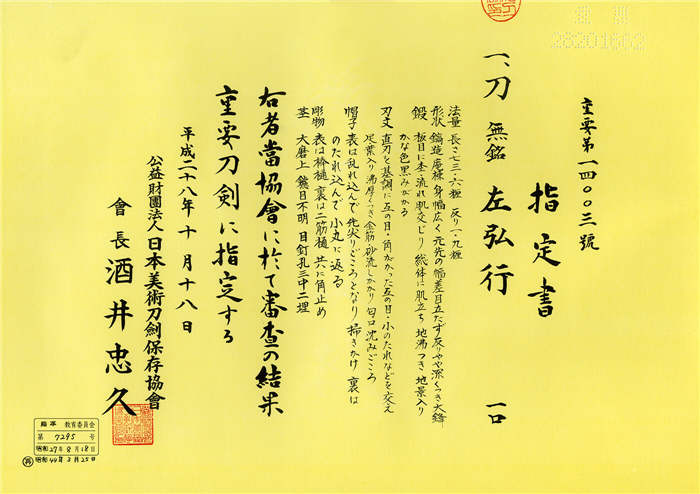 重要第一四〇〇三號
指定書
一、刀 無銘 左弘行 一口
法量 長さ七三・六糎 反り一・九糎
形状 鎬造 庵棟 身幅広く 元先の幅差目立たず 反りやや深くつき 大鋒
鍛 板目に杢・流れ肌交じり 総体に肌立ち 地沸つき 地景入り
かな色黒みがかる
刃文 直刃を基調に互の目・角がかった互の目・小のたれなどを交え
足葉入り 沸厚くつき 金筋・砂流しかかり 匂口沈みごころ
帽子 表は乱れ込んで先尖りどころとなり 掃きかけ 裏は
のたれ込んで小丸に返る
彫物 表は棒樋 裏は二筋樋 共に角止め
茎 大磨上 鑢目不明 目釘孔三中二埋
右者當協會に於て審査の結果
重要刀剣に指定する
平成二十八年十月十八日
公益財團法人日本美術刀劍保存協會
會長 酒井忠久
熊本 教育委員会
第 7295 号
昭和27年8月18日
昭和40年2月25日
28201662